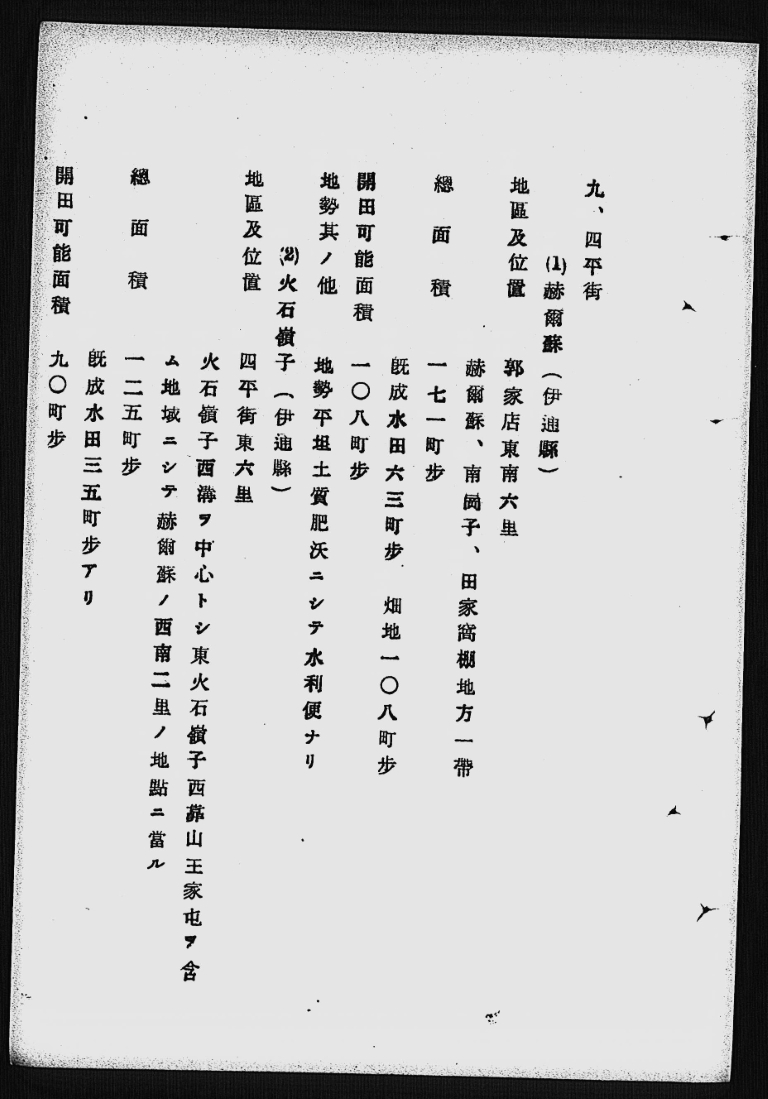 九、四平街
(1)赫爾蘇（伊通縣）
地區及位置　郭家店東南六里
赫爾蘇、南崗子、田家窩棚地方一帶
總面積　一七一町步
既成水田六三町步　畑地一〇八町步
開田可能面積　一〇八町步
地勢其ノ他　地勢平坦土質肥沃ニシテ水利便ナリ
(2)火石嶺子（伊通縣）
地區及位置　四平街東六里
火石嶺子西溝ヲ中心トシ東火石嶺子西靠山王家屯ヲ含
ム地域ニシテ赫爾蘇ノ西南二里ノ地點ニ當ル
總面積　一二五町步
既成水田三五町步アリ
開田可能面積　九〇町步